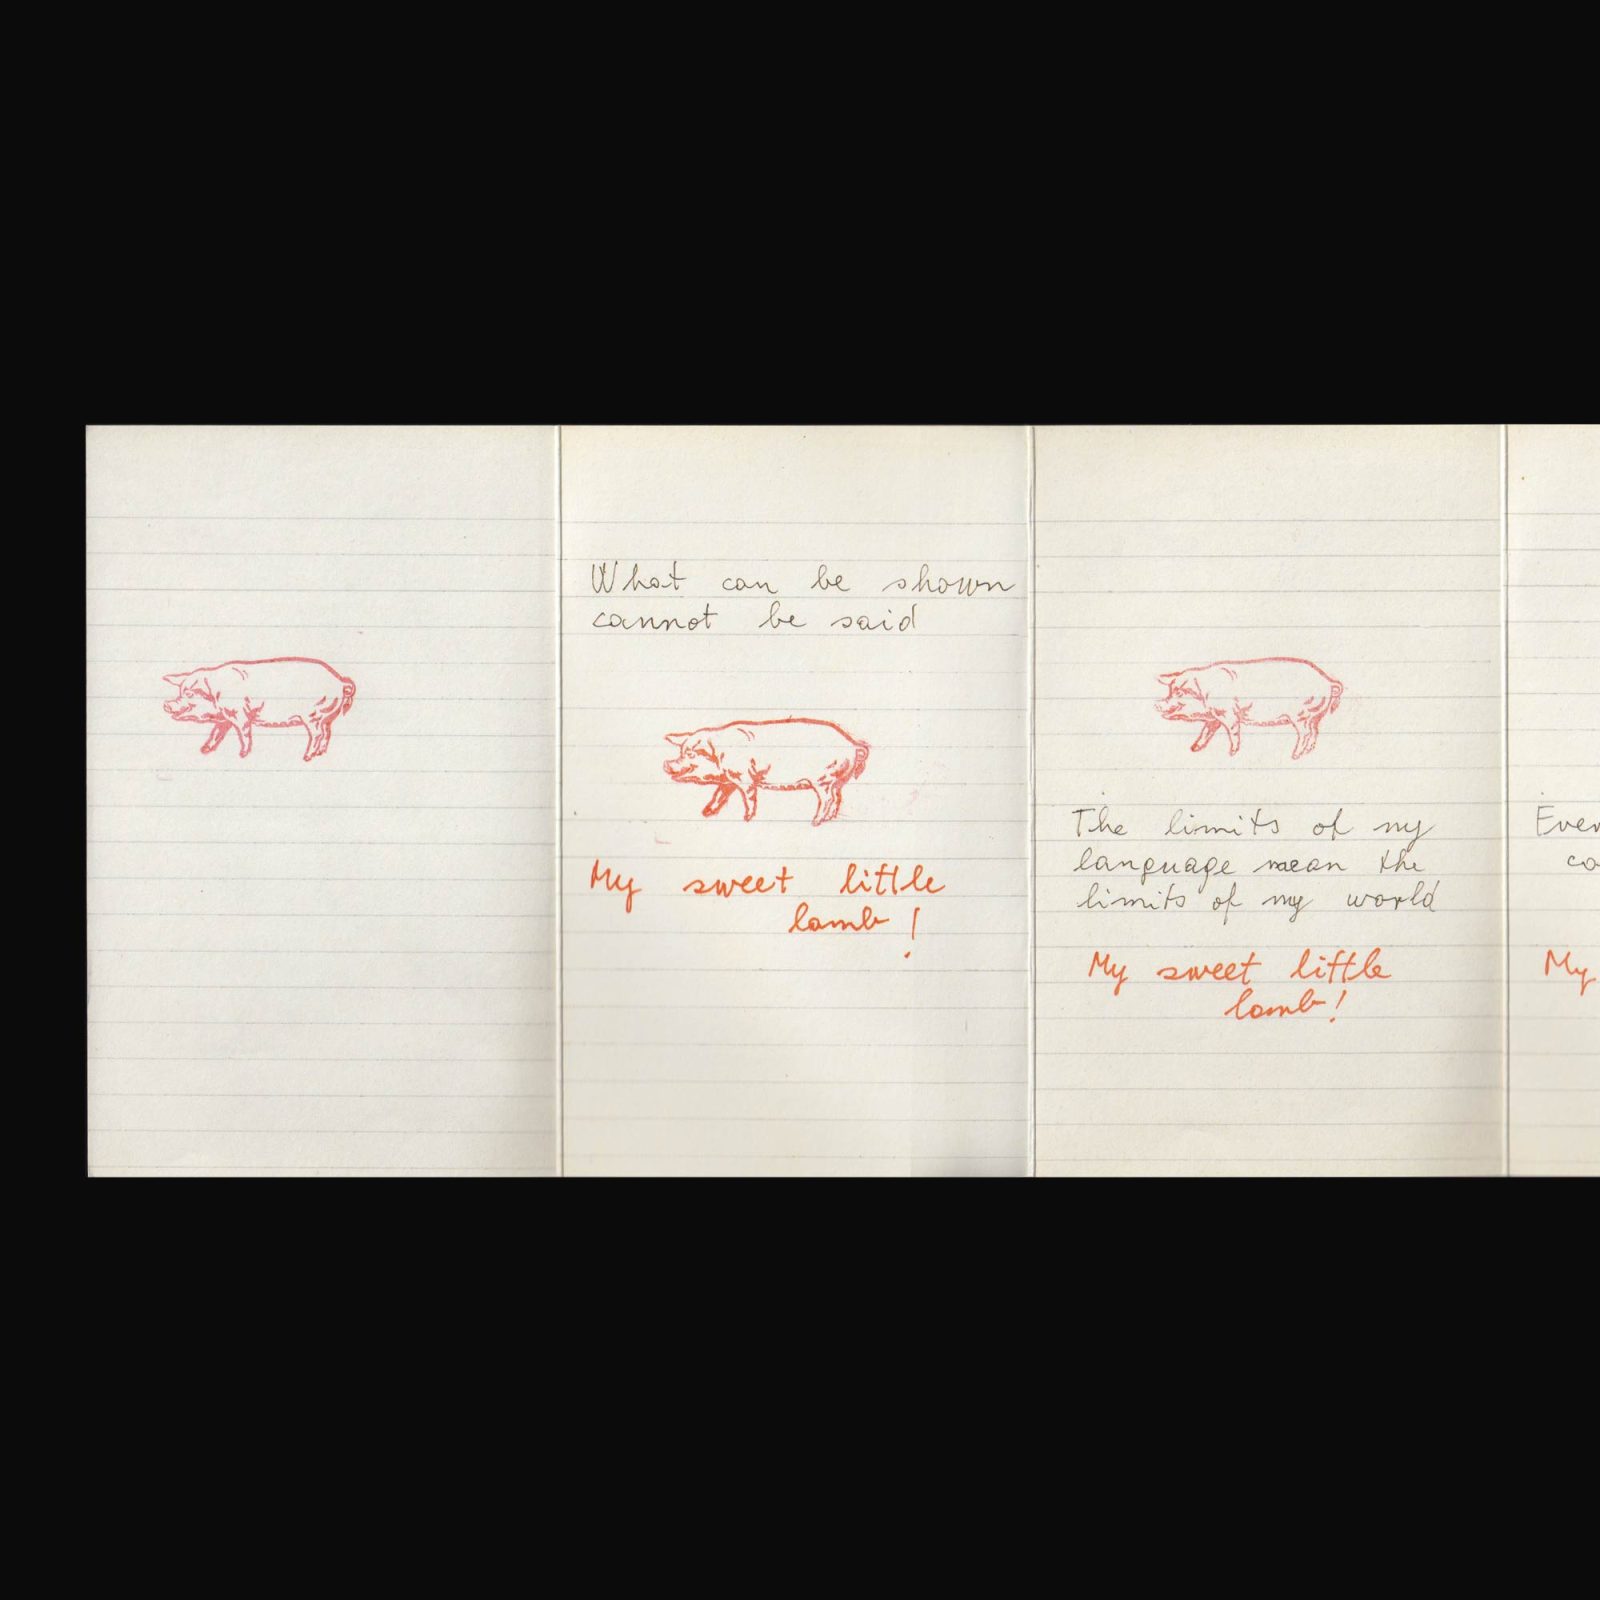 What can be shown
cannot be said
My sweet little
lamb!
The limits of my
language mean the
limits of my world
My sweet little
lamb!
Ever
co
My